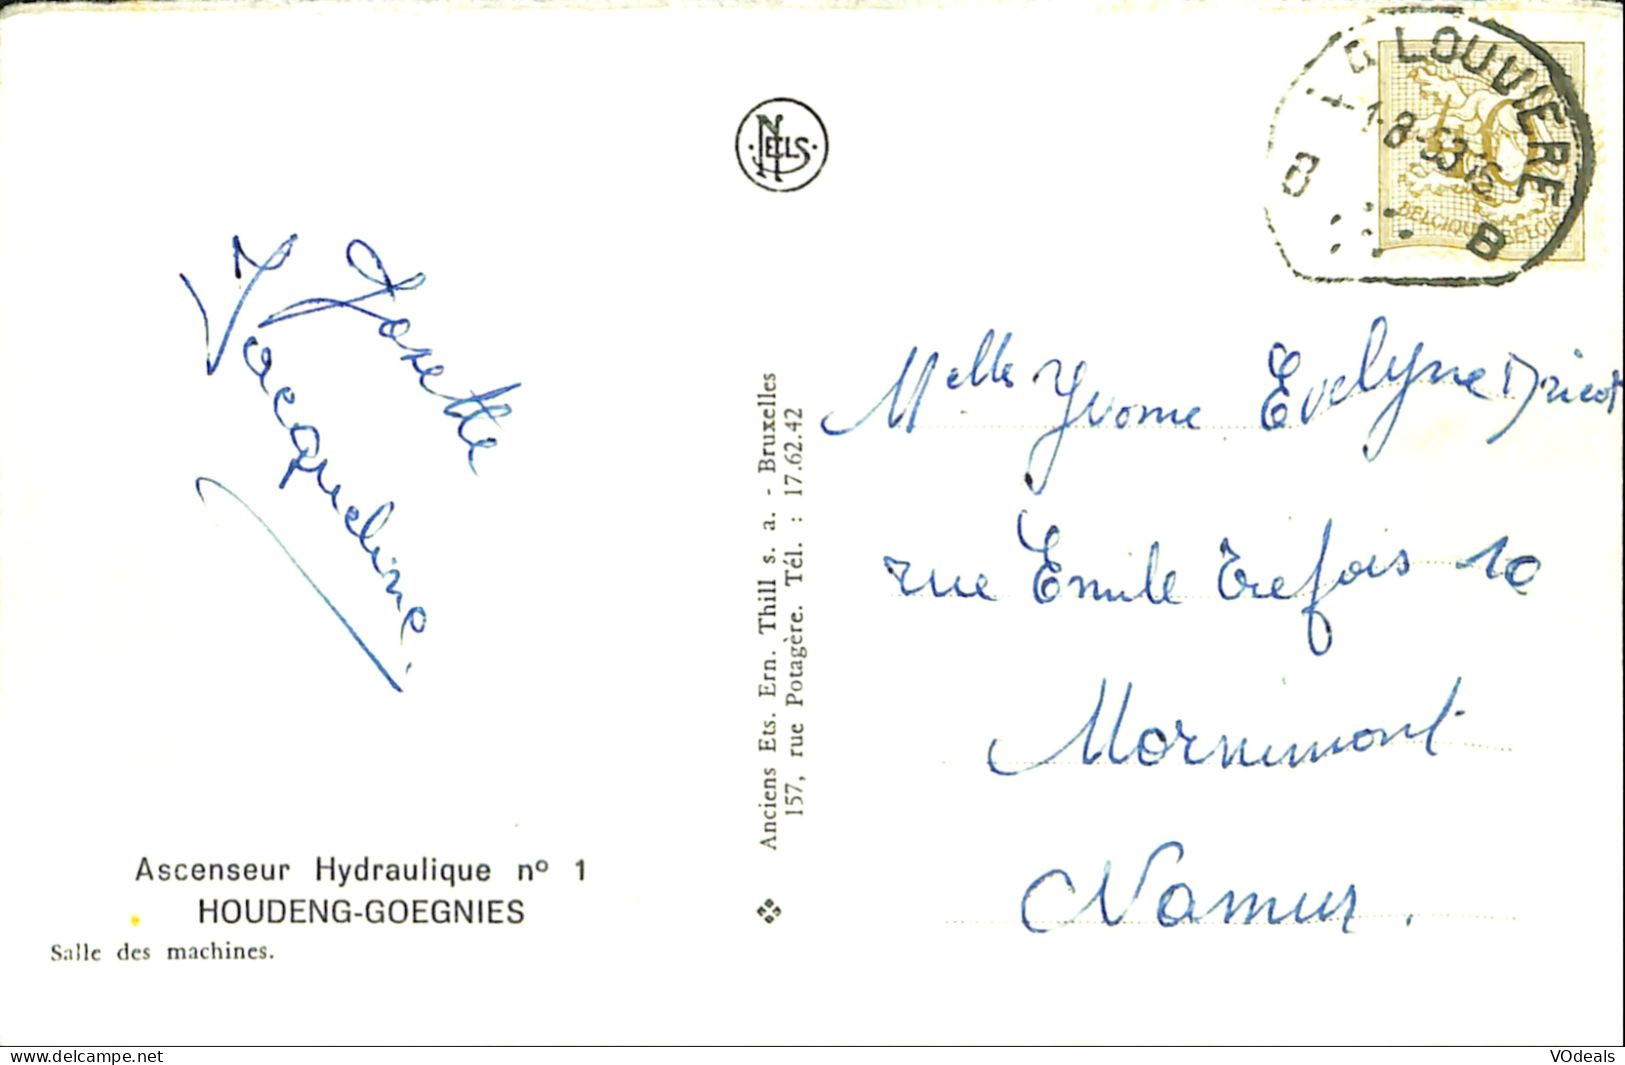 NELS
LA LOUVIERE
1-8-53
B B
BELGIQUE BELGIE
Josette
Jacqueline.
Melles Yvonne Evelyne Dricot
rue Emile Trefois 10
Mornimont
Namur.
Anciens Ets. Ern. Thill s. a. - Bruxelles
157, rue Potagère. Tél. : 17.62.42
Ascenseur Hydraulique nº 1
HOUDENG-GOEGNIES
Salle des machines.
www.delcampe.net
VOdeals